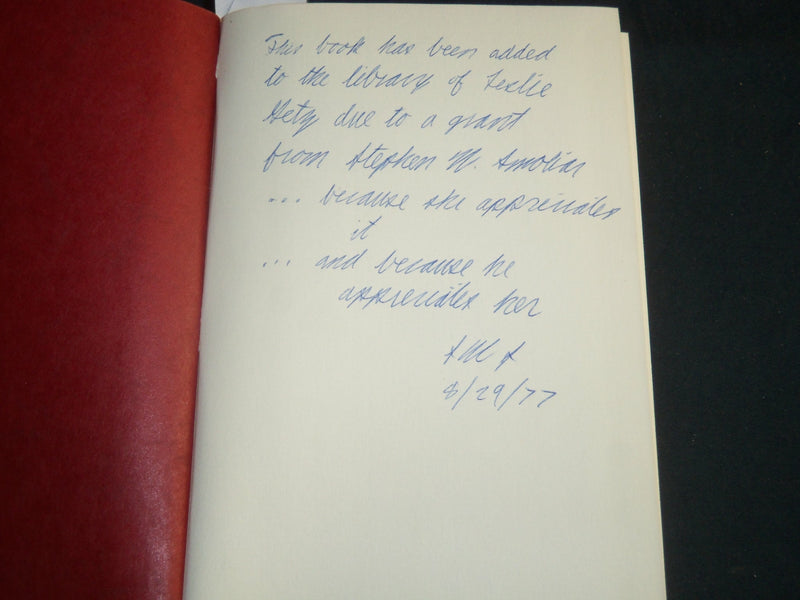 This book has been added
to the library of Leslie
Getz due to a grant
from Stephen W. Smoliar
... because she appreciates
it
... and because he
appreciates her
SWS
8/29/77